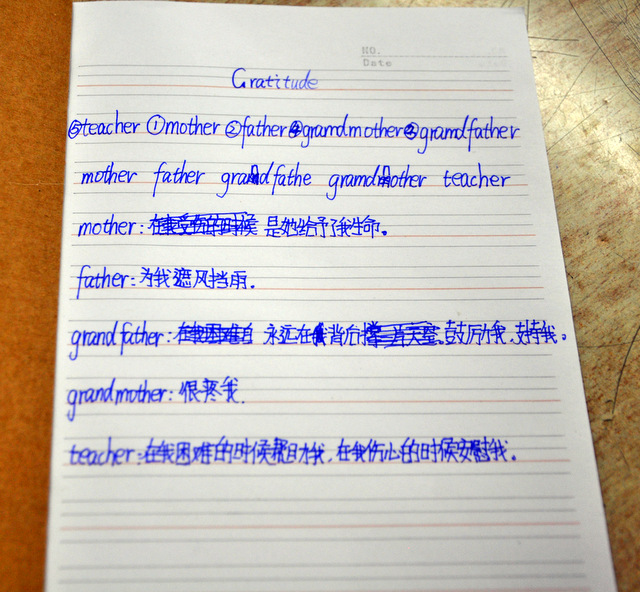 NO.
Date
Gratitude
⑤teacher ①mother ②father ④gramdmother ③grandfather
mother father grandfathe gramdmother teacher
mother: 在接受伤的时候 是她给予了我生命。
father: 为我遮风挡雨。
grandfather: 在我困难的 永远在我背后撑一片天空、鼓厉我、支持我。
grandmother: 很疼我.
teacher: 在我困难的时候帮助我, 在我伤心的时候安慰我。